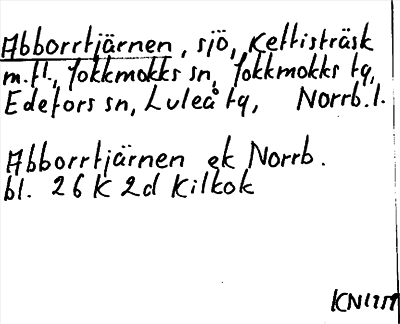 Abborrtjärnen, sjö, Kettisträsk
m.fl., Jokkmokks sn, Jokkmokks tg,
Edefors sn, Luleå tg, Norrb. l.
Abborrtjärnen ek Norrb.
bl. 26 K 2d Kilkok